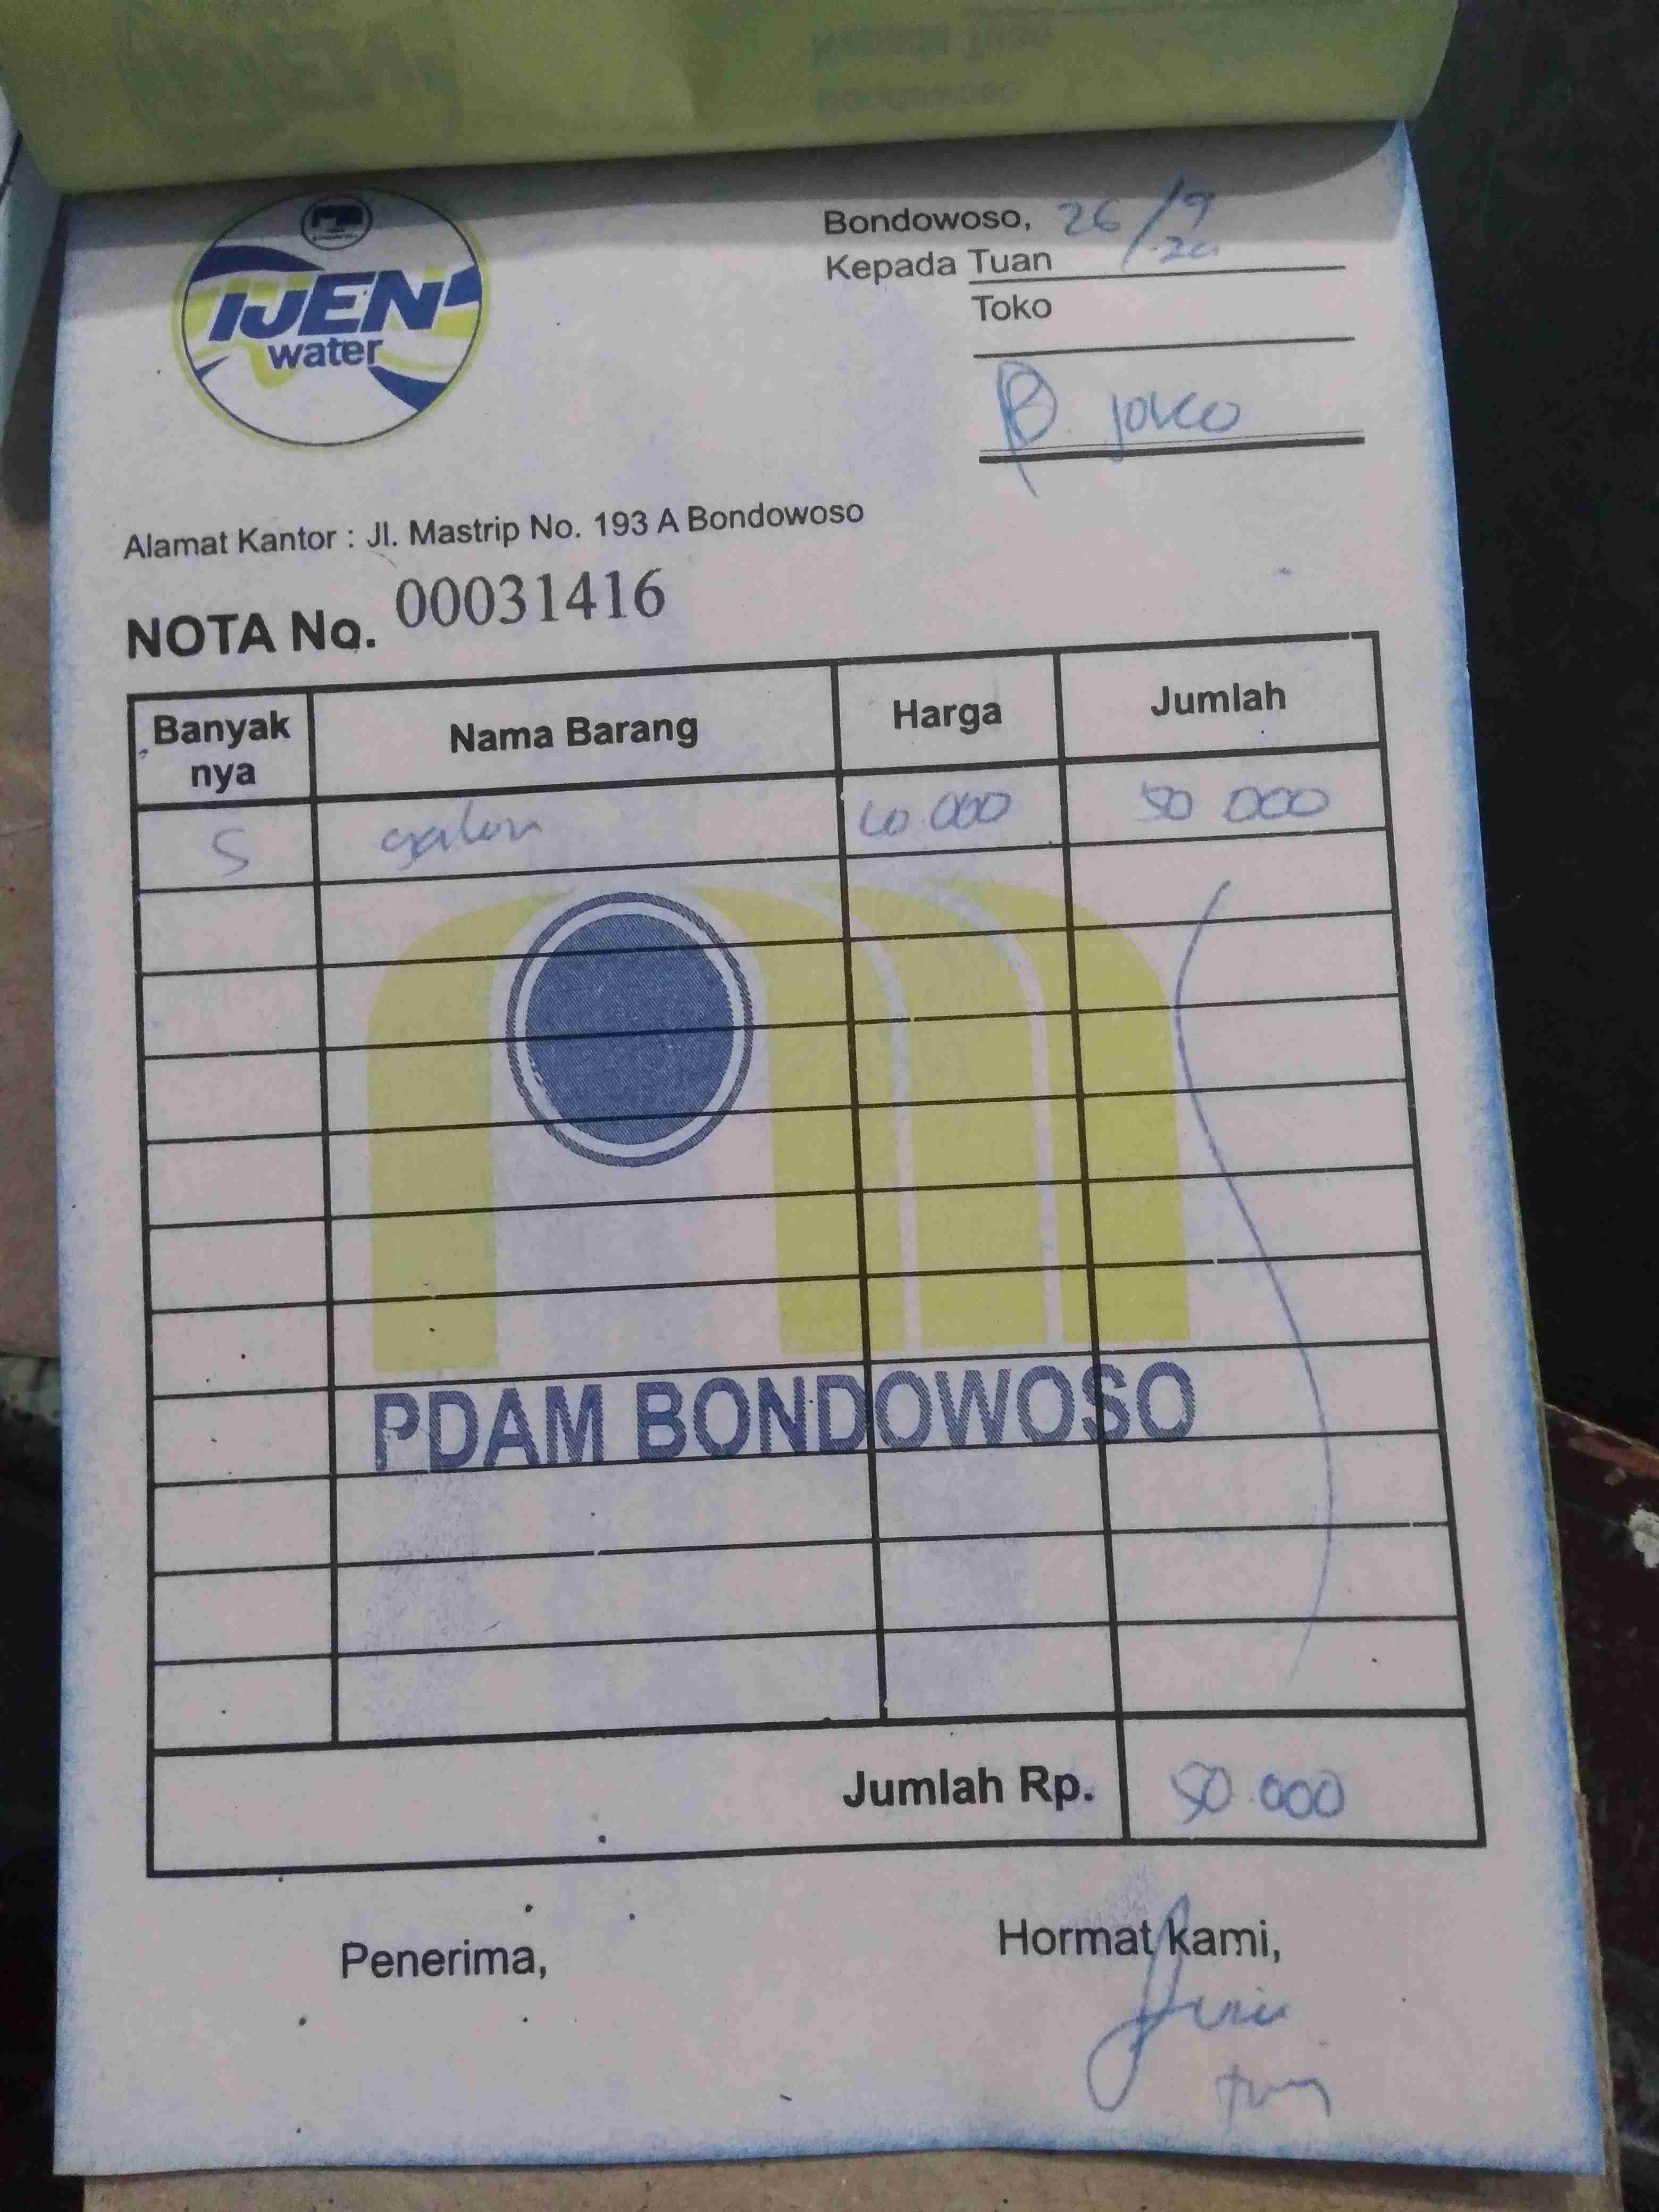 IJEN
water
Bondowoso, 26/9
20
Kepada Tuan
Toko
B. joko
Alamat Kantor : Jl. Mastrip No. 193 A Bondowoso
NOTA No. 00031416
Banyak nya Nama Barang Harga Jumlah
5 galon 10.000 50.000
PDAM BONDOWOSO
Jumlah Rp. 50.000
Penerima, Hormat kami,